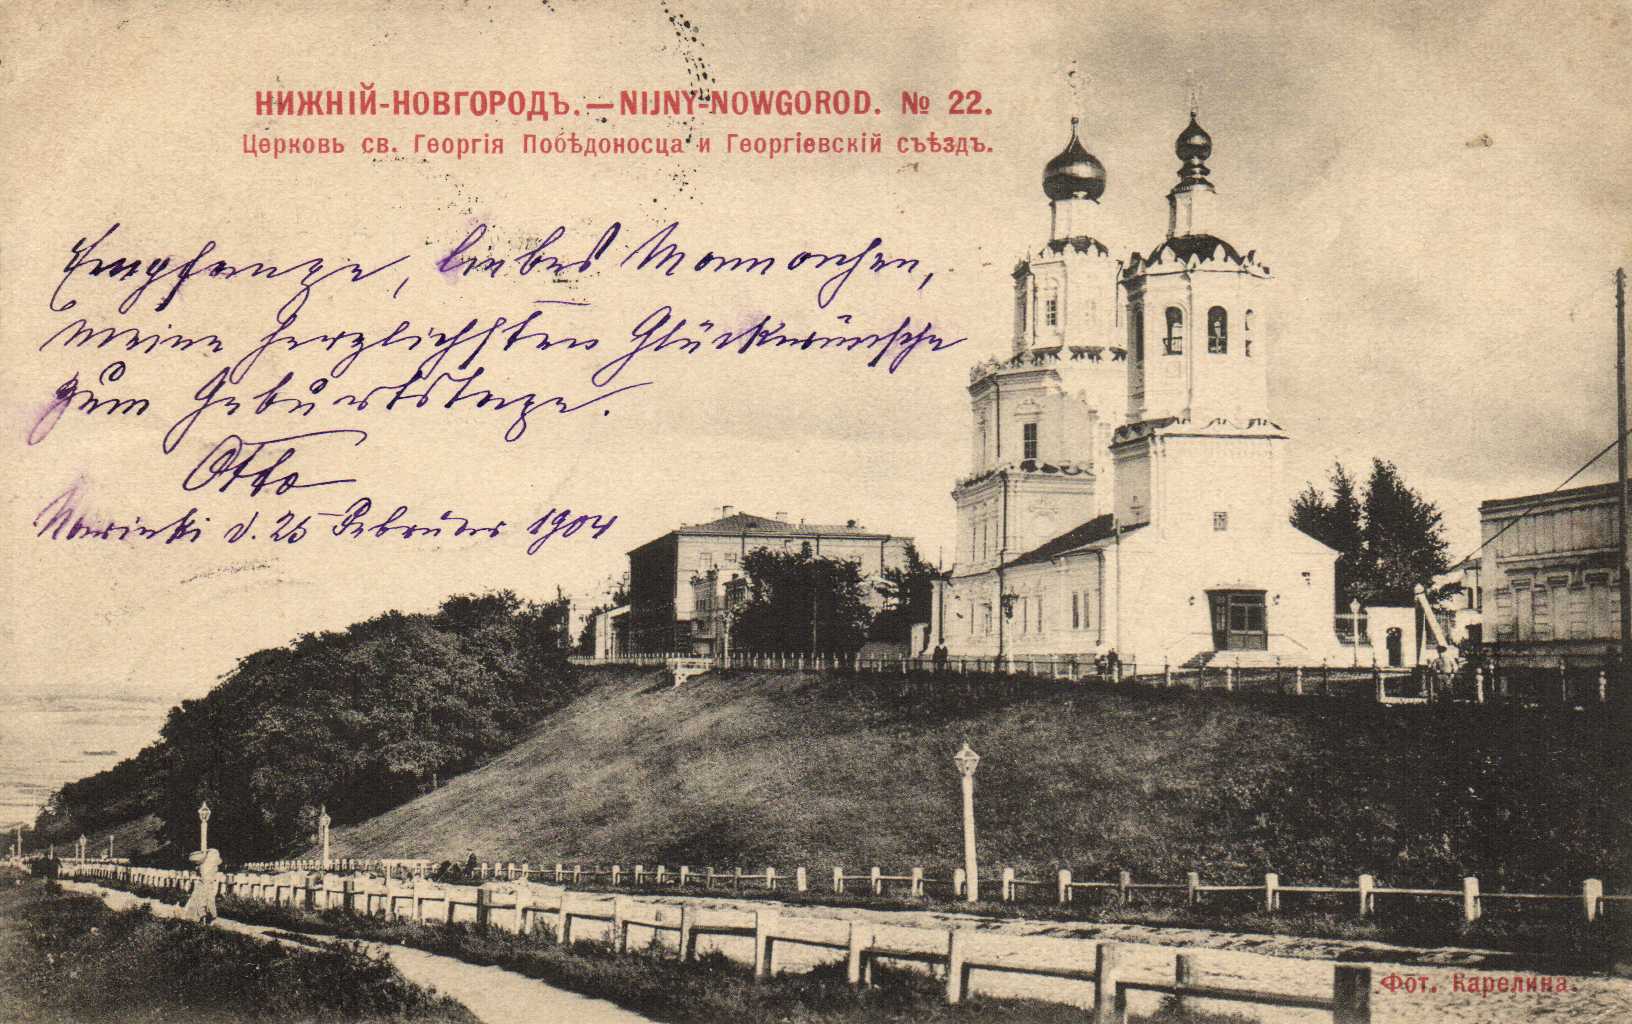 НИЖНІЙ-НОВГОРОДЪ.—NIJNY-NOWGOROD. № 22.
Церковь св. Георгія Побѣдоносца и Георгіевскій съѣздъ.
Empfange, liebes Mamachen,
meine herzlichsten Glückwünsche
zum Geburtstage.
Otto
d. 25 Februar 1904
Фот. Карелина.